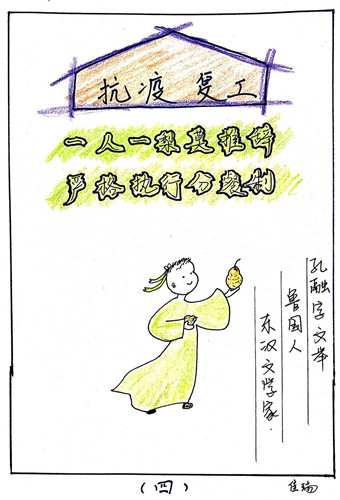 抗疫复工
一人一梨莫推辞
严格执行分餐制
孔融字文举
鲁国人
东汉文学家.
(四)
佳瑞